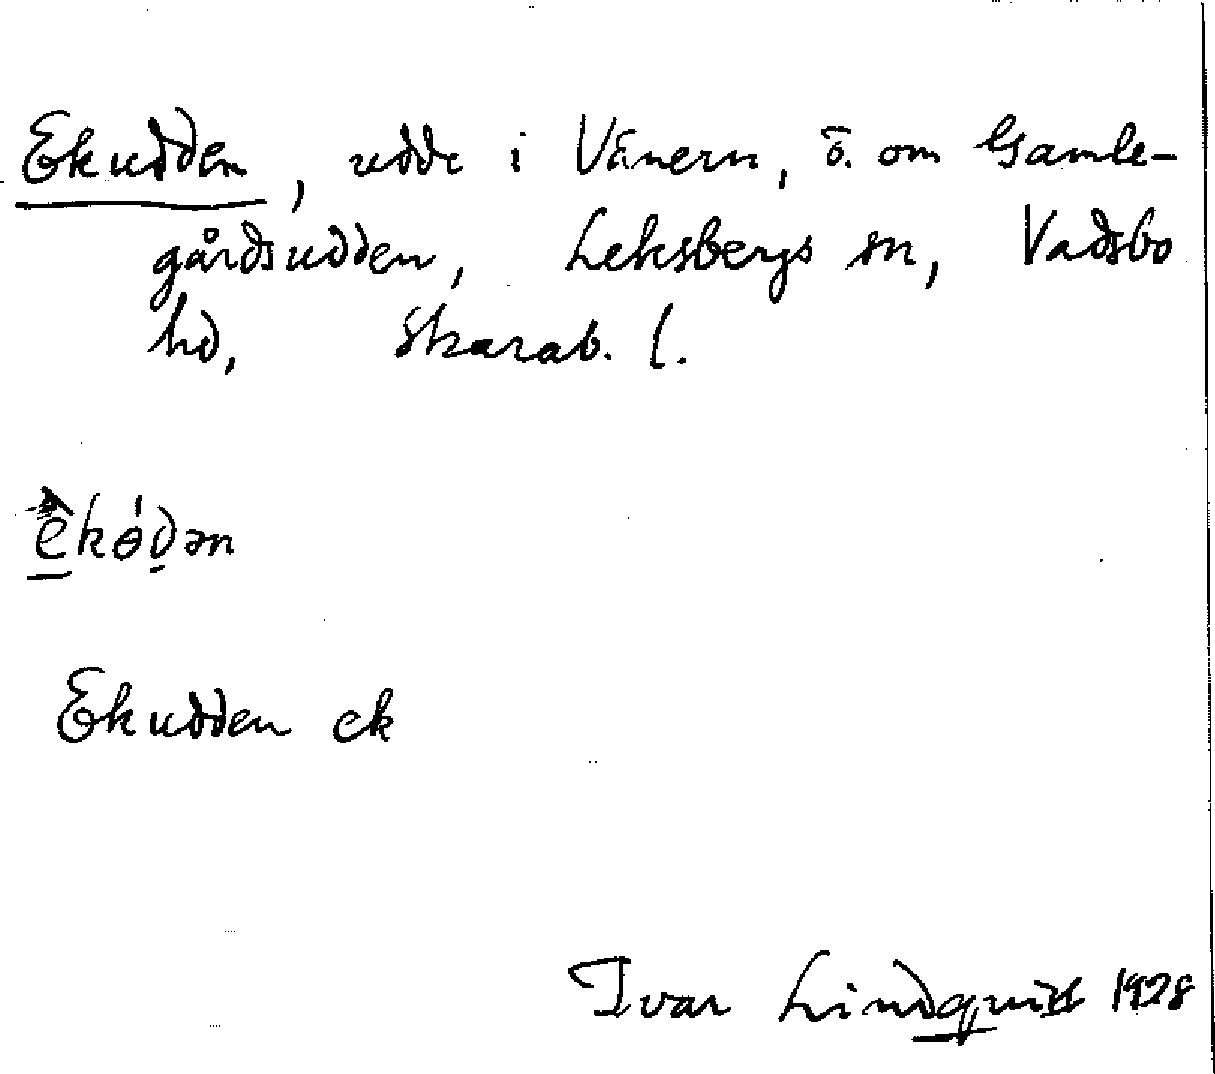 Ekudden, udde i Vänern, ö. om Gamle-
gårdsudden, Leksbergs sn, Vadsbo
hd, Skarab. l.
Ekudden ek
Ivar Lindquist 1928